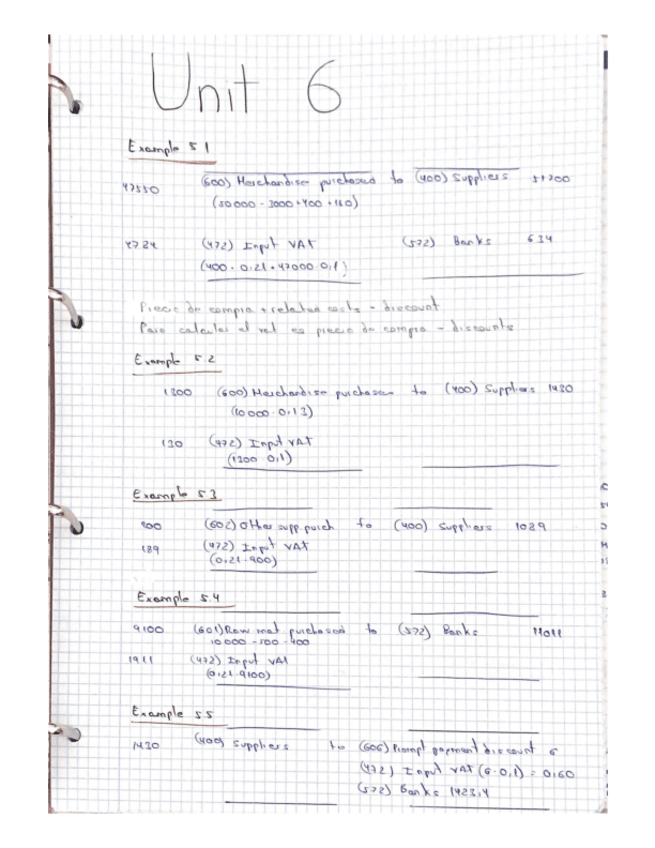 Unit 6
Example 5.1
47550 (600) Merchandise purchased to (400) Suppliers 51700
(50000 - 3000 + 400 + 150)
4784 (472) Input VAT (572) Banks 634
(400 · 0,21 + 47000 · 0,1)
Precio de compra + related costs - discount
Para calcular el vat es precio de compra - discounts
Example 5.2
1300 (600) Merchandise purchases to (400) Suppliers 1430
(10000 · 0,13)
130 (472) Input VAT
(1300 · 0,1)
Example 5.3
900 (602) Other supp. purch to (400) Suppliers 1089
189 (472) Input VAT
(0,21 · 900)
Example 5.4
9100 (601) Raw mat purchased to (572) Banks 11011
10 000 - 500 - 400
1911 (472) Input VAT
(0,21 · 9100)
Example 5.5
1430 (400) Suppliers to (606) Prompt payment discount 6
(472) Input VAT (6 · 0,1) = 0,60
(572) Banks 1423,4